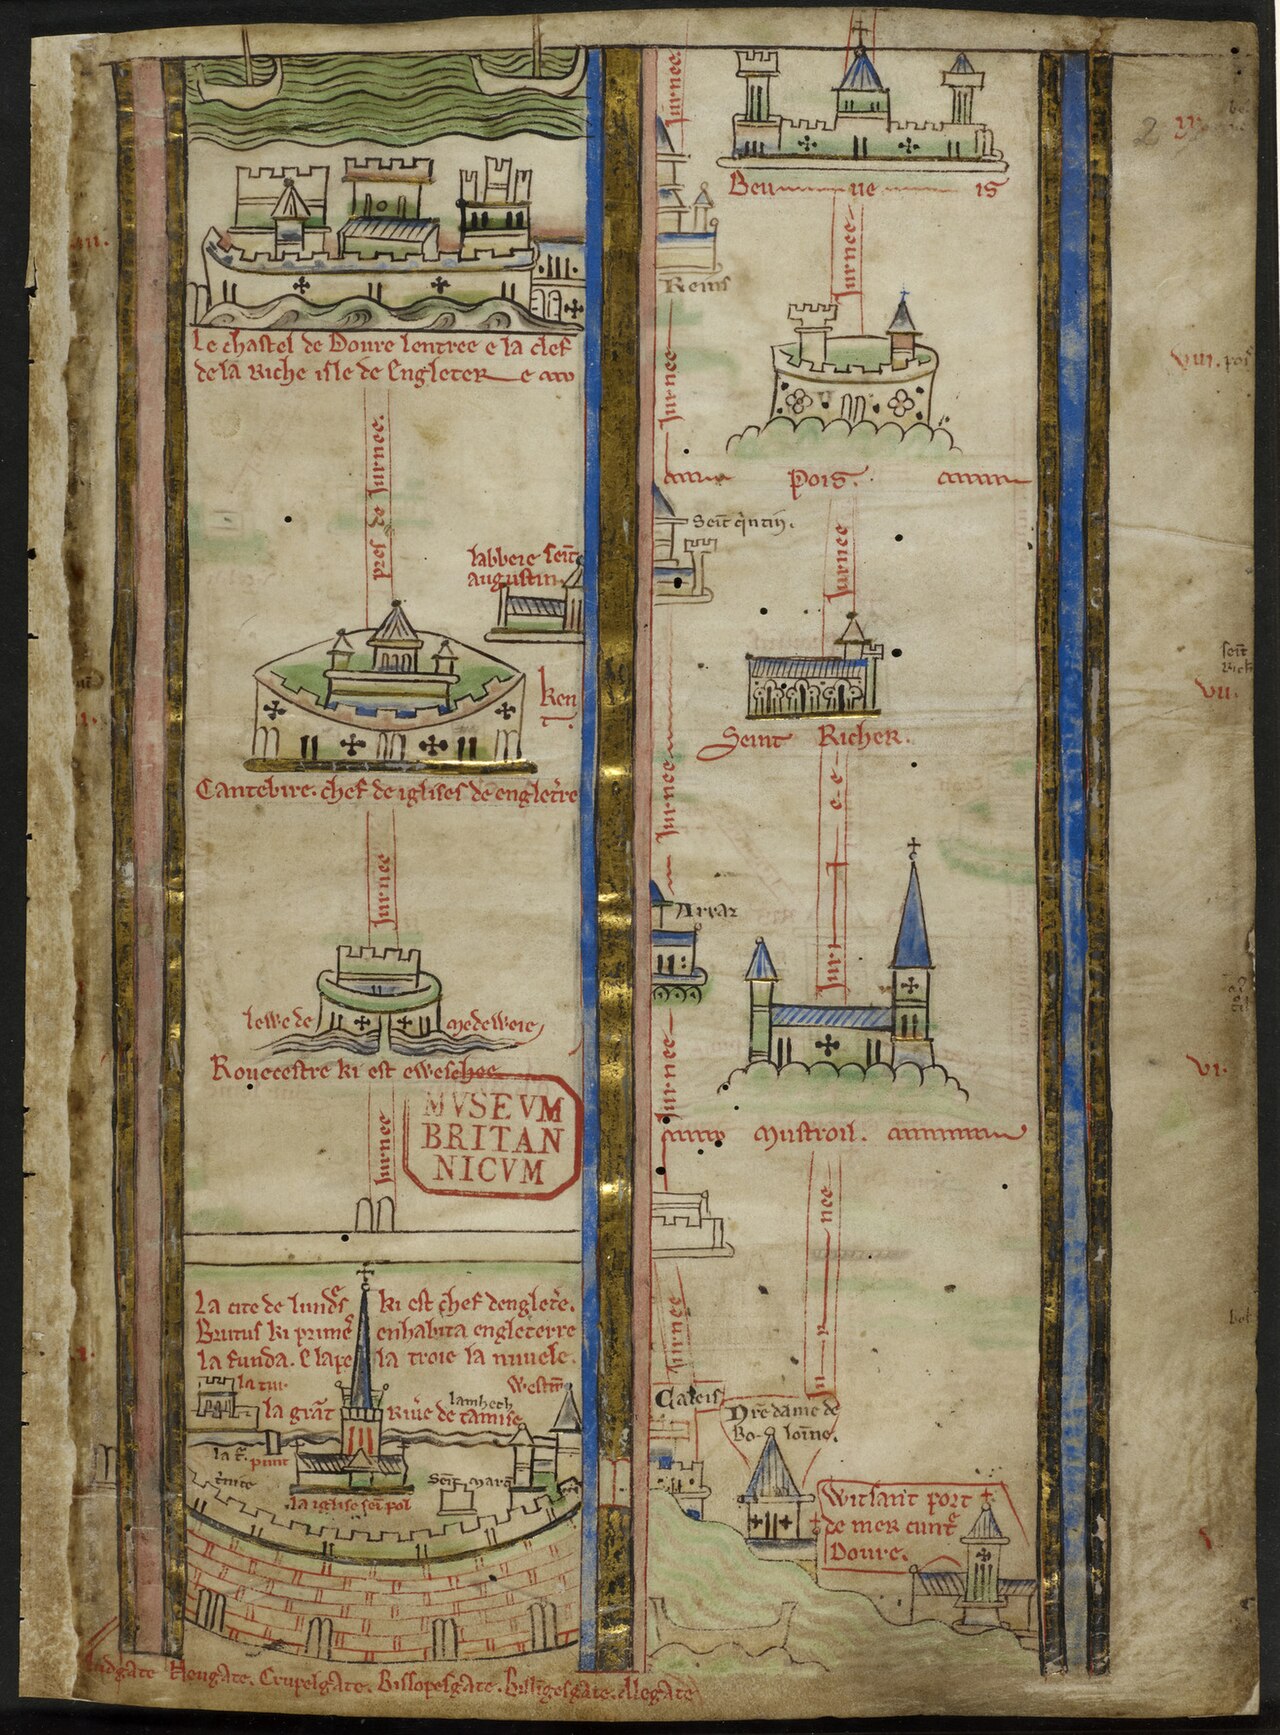 Le chastel de Doure lentree e la clef
de la Riche isle de Engleter e
pres de Jurnee.
labbeie seint
augustin
Ken
t
Cantebire. chef de iglises de engletere
Jurnee
lewe de medeweie
Rouecestre ki est eweschee
MVSEVM
BRITAN
NICVM
Jurnee
La cite de lundres ki est chef dengletere.
Brutus ki primes enhabita engleterre
la funda. E lapela troie la nuuele.
la tur
Westm
lambeth
la grant Riuere de tamise
punt
la iglise seint pol
Ludgate. Neugate. Crupelgate. Bissopesgate. Billigesgate. Alegate
Jurnee
Reins
Jurnee
Seint quintin.
Jurnee
Arraz
Jurnee
Jurnee
Caleis
Beu ue is
Jurnee
Pois.
Jurnee
Seint Richer.
Jur n e e
Mustroil.
Ju r nee
Nre dame de
Boloine.
Witsant port
de mer cuntre
Doure.
2
VIII.
seint
Rich
VII.
VI.